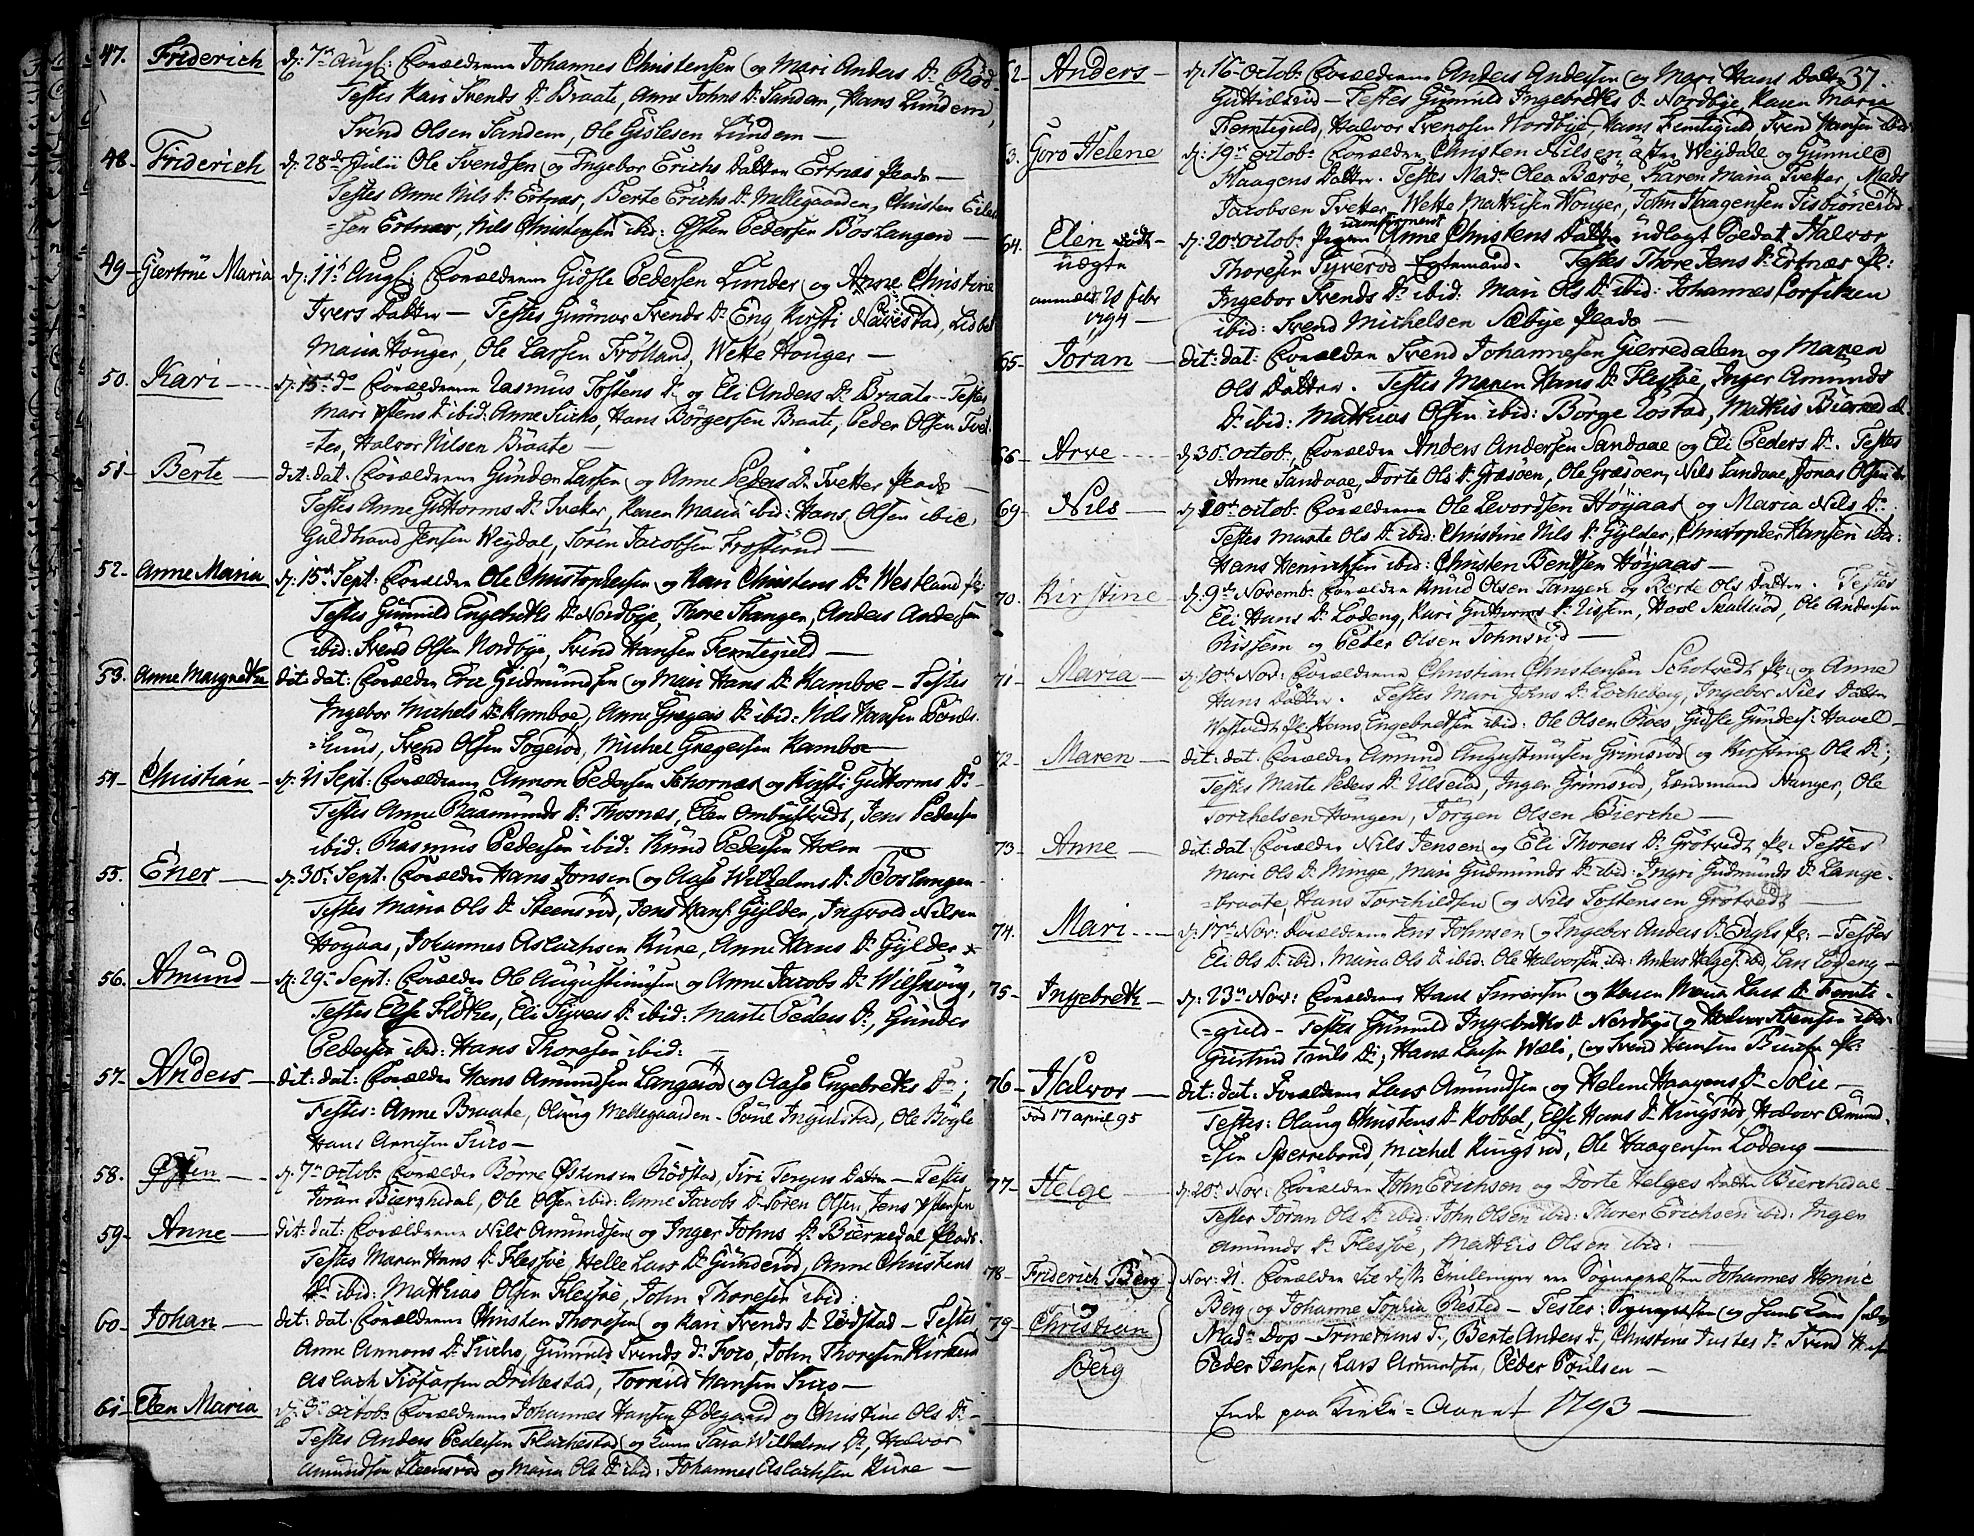 47. Friderich d: 7de Aug: Forældrene Johannes Christensen og Mari Anders D: Rød-
Testes Kari Svends D: Braate, Anne Johns D: Sandem, Hans Lundem,
Svend Olsen Sandem, Ole Gislesen Lundem —
48- Friderich d: 28de Julii Ole Svendsen og Ingebor Erichs Datter Ertnæs Plads —
Testes Anne Nils D: Ertnæs, Berte Erichs D: Mellegaarden, Christen
=sen Ertnæs, Nils Christensen ibid: Østen Pedersen Boslangen —
49- Giertrue Maria d: 11te Aug: Forældrene Gidsle Pedersen Lunder og Anne Christine
Ivers Datter — Testes Gunnor Svends D: Eng, Kirsti Navestad,
Maria Houger, Ole Larsen Frølland, Wette Houger —
50. Kari d: 15de do Forældrene Rasmus Tostens og Eli Anders D: Braate — Testes
Mari D: ibid: Anne Hans Børgersen Braate, Peder Olsen Tvet-
=ter, Halvor Nilsen Braate —
51- Berte — dit: dat: Forældrene Gunder Larsen og Anne Peders D: Tvetter Plads —
Testes Anne Guttorms D: Tvetter, Karen Maria ibid: Hans Olsen ibid
Guldbrand Jensen Weydal, Søren Jacobsen Frosterud —
52- Anne Maria d: 15de Sept: Forældre Ole Christophersen og Kari Christens D: Westland pl:
Testes Gunnild Engebreths D: Nordbye, Thore Stanger, Anders Andersen
ibid: Svend Olsen Nordbye, Svend Hansen Femtegield —
53. Anne Margrethe dit: dat: Forældre Gudmundsen og Mari Hans D: Kamboe — Testes
Ingebor Michels D: Kamboe, Anne Gregers D: ibid: Nils Hansen
=huus, Svend Olsen Togerød, Michel Gregersen Kamboe —
54- Christian — d: 21 Sept: Forældrene Ammon Pedersen Thornæs og Kirsti Guttorms D: —
Testes Anne Raamunds D: Thornæs, Elen Ombustvedt, Jens Pedersen
ibid: Rasmus Pedersen ibid: Knud Pedersen Holm —
55. Ener — d: 30te Sept: Forældre Hans Jonsen og Aase Wilhelms D: Boslangen-
Testes Maria Ols D: Steensrød, Jens Hans: Gylder, Ingvold Nilsen
Høyaas, Johannes Aslachsen Kure, Anne Hans D: Gylder
56. Amund — d: 29de Sept: Forældre Ole Augustinusen og Anne Jacobs D:
Testes Else Flokes, Eli Syvers D: ibid: Marte Peders D:, Gunder
Pedersen ibid: Hans Thoresen ibid: —
57- Anders — dit: dat: Forældre Hans Amundsen Langerød og Aase Engebreths D:;
Testes: Anne Braate, Olaug Mellegaarden - Poul Ingulstad, Ole Bøyle
Hans Arnesen Suro —
58. Østen — d: 7de Octob: Forældre Børre Østensen Rødstad, Siri Torgers Datter — Testes
Joran Bierchedal, Ole Olsen ibid: Anne Jacobs D: Søren Olsen, Jens
59- Anne — dit: dat: Forældrene Nils Amundsen og Inger Johns D: Biernedal Plads-
Testes Maren Hans D: Flessøe, Helle Lars D: Gunderød, Anne Christens
D: ibid: Mathias Olsen Flessøe, John Thoresen ibid:
60- Johan — dit: dat: Forældrene Christen Thoresen og Kari Svends D: Rødstad — Testes
Anne Ammons D: Gunnild Svends D: Foss, John Thoresen Kirkerud
Aslach Drillestad, Tormod Hansen Suro —
61- Elen Maria d: 9de Octob: Forældrene Johannes Hansen Ødegaard og Christine Ols D: —
Testes Anders Pedersen Flachestad og kone Sara Wilhelms D:, Halvor
Amundsen Steensrød og Maria Ols D: ibid: Johannes Aslachsen Kure —
37.
62- Anders — d: 16 Octob: Forældrene Anders Andersen og Mari Hans Datter
Testes Gunnild Ingebreths D: Nordbye, Karen Maria
Femtegield, Halvor Svendsen Nordbye, Hans Femtegield Svend Hansen ibid
63. Goro Helene d: 19de Octob: Forældre Christen Nilsen Weydahl og Gunnild
Haagens Datter. Testes Mad: Olea Bærøe, Karen Maria Tvetter, Mads
Jacobsen Tvetter, Wette Mathisen Houger, John Haagensen
64. Elen født d: 20de Octob: Pigen uconfirmeret Anne Christens Datter udlagt Soldat Halvor
uægte Thoresen Syverød Egtemand. Testes Thore Jens D: Ertnæs pl:
anmeldt 20 Febr Ingebor Svends D: ibid: Mari Ols D: ibid: Johannes Torfinsen
1794 — ibid: Svend Michelsen Sæbye Plads —
65- Joran — dit: dat: Forældre Svend Johannesen Gierredalen og Maren
Ols Datter. Testes Maren Hans D: Flessøe, Inger Amunds
D: ibid: Mathias Olsen ibid: Børge Rostad, Mathis Biernedal
66- Arve — d: 30te Octob: Forældre Anders Andersen Sandaae og Eli Peders D: Testes
Anne Sandaae, Dorte Ols D: Græsøen, Ole Græsøen, Nils Sandaae, Jonas Olsen
69- Nils — d: 20de Octob: Forældrene Ole Levordsen Høyaas og Maria Nils D:
Testes Marte Ols D: ibid: Christine Nils D: Gylder, Christopher Hansen ibid:
Hans Henrichsen ibid: Christen Bentsen Høyaas —
70- Kirstine d: 9de Novemb: Forældre Knud Olsen Tangen og Berte Ols Datter. Testes
Eli Hans D: Lødeng, Kari Guttorms D: Rissem, Hovel Skullerød, Ole Andersen
Rissem og Peter Olsen Johnsrud —
71- Maria — d: 10de Nov: Forældrene Christian Christensen pl: og Anne
Hans Datter. Testes Mari Johns D: Locheberg, Ingebor Nils Datter
pl: Hans Engebretsen ibid: Ole Olsen Gidsle Gunders: Havel —
72- Maren — dit: dat: Forældre Amund Augustinusen Grimsrød og Kirstine Ols D:;
Testes Marte Peders D: Ulserød, Inger Grimsrød, Lænsmand Hunger, Ole
Torchelsen Hougen, Jørgen Olsen Bierche —
73- Anne — dit: dat: Forældre Nils Jensen og Eli Thores D: Grotvedt pl: Testes
Mari Ols D: Minge, Mari Gudmunds D: ibid: Ingri Gudmunds D: Lange-
=braate, Hans Torchildsen og Nils Tostensen Grotvedt —
74. Mari — d: 17de Nov: Forældrene Jens Johnsen og Ingebor Anders D: pl: — Testes
Eli Ols D: ibid: Maria Ols D: ibid: Ole Halvorsen ibid: Anders Helges: ibid Lars Lødeng —
75- Ingebreth — d: 23de Nov: Forældrene Hans Sørensen og Karen Maria Lars D: Femte-
=gield — Testes Gunnild Ingebreths D: Nordbye og Halvor Svensen ibid:
Giertrud Truls D:, Hans Larsen Wæli, og Svend Hansen pl:
76- Halvor — dit: dat: Forældrene Lars Amundsen og Helene Haagens D: Solie —
død 17 april 95 Testes: Olaug Christens D: Kobbel, Else Hans D: Kingsrød, Halvor Amund-
=sen Sperrebond, Michel Kingsrød, Ole Haagensen Lødeng —
77- Helge — d: 20de Nov: Forældre John Erichsen og Dorte Helges Datter Bierchedal
Testes Joran Ols D: ibid: John Olsen ibid: Thorer Erichsen ibid: Inger
Amunds D: Flessøe, Mathis Olsen ibid: —
78- Friderich Berg Nov: 21. Forældre til disse Tvillinger ere Sognepræsten Johannes Henric
Berg og Johanne Sophia Rested — Testes: Sognepræsten og hans kone
79- Christian Mad: Dop D:, Berte Anders D:, Christine Justes D: Svend
Berg Peder Jensen, Lars Amundsen, Peder Poulsen —
Ende paa Kirke=Aaret 1793 —